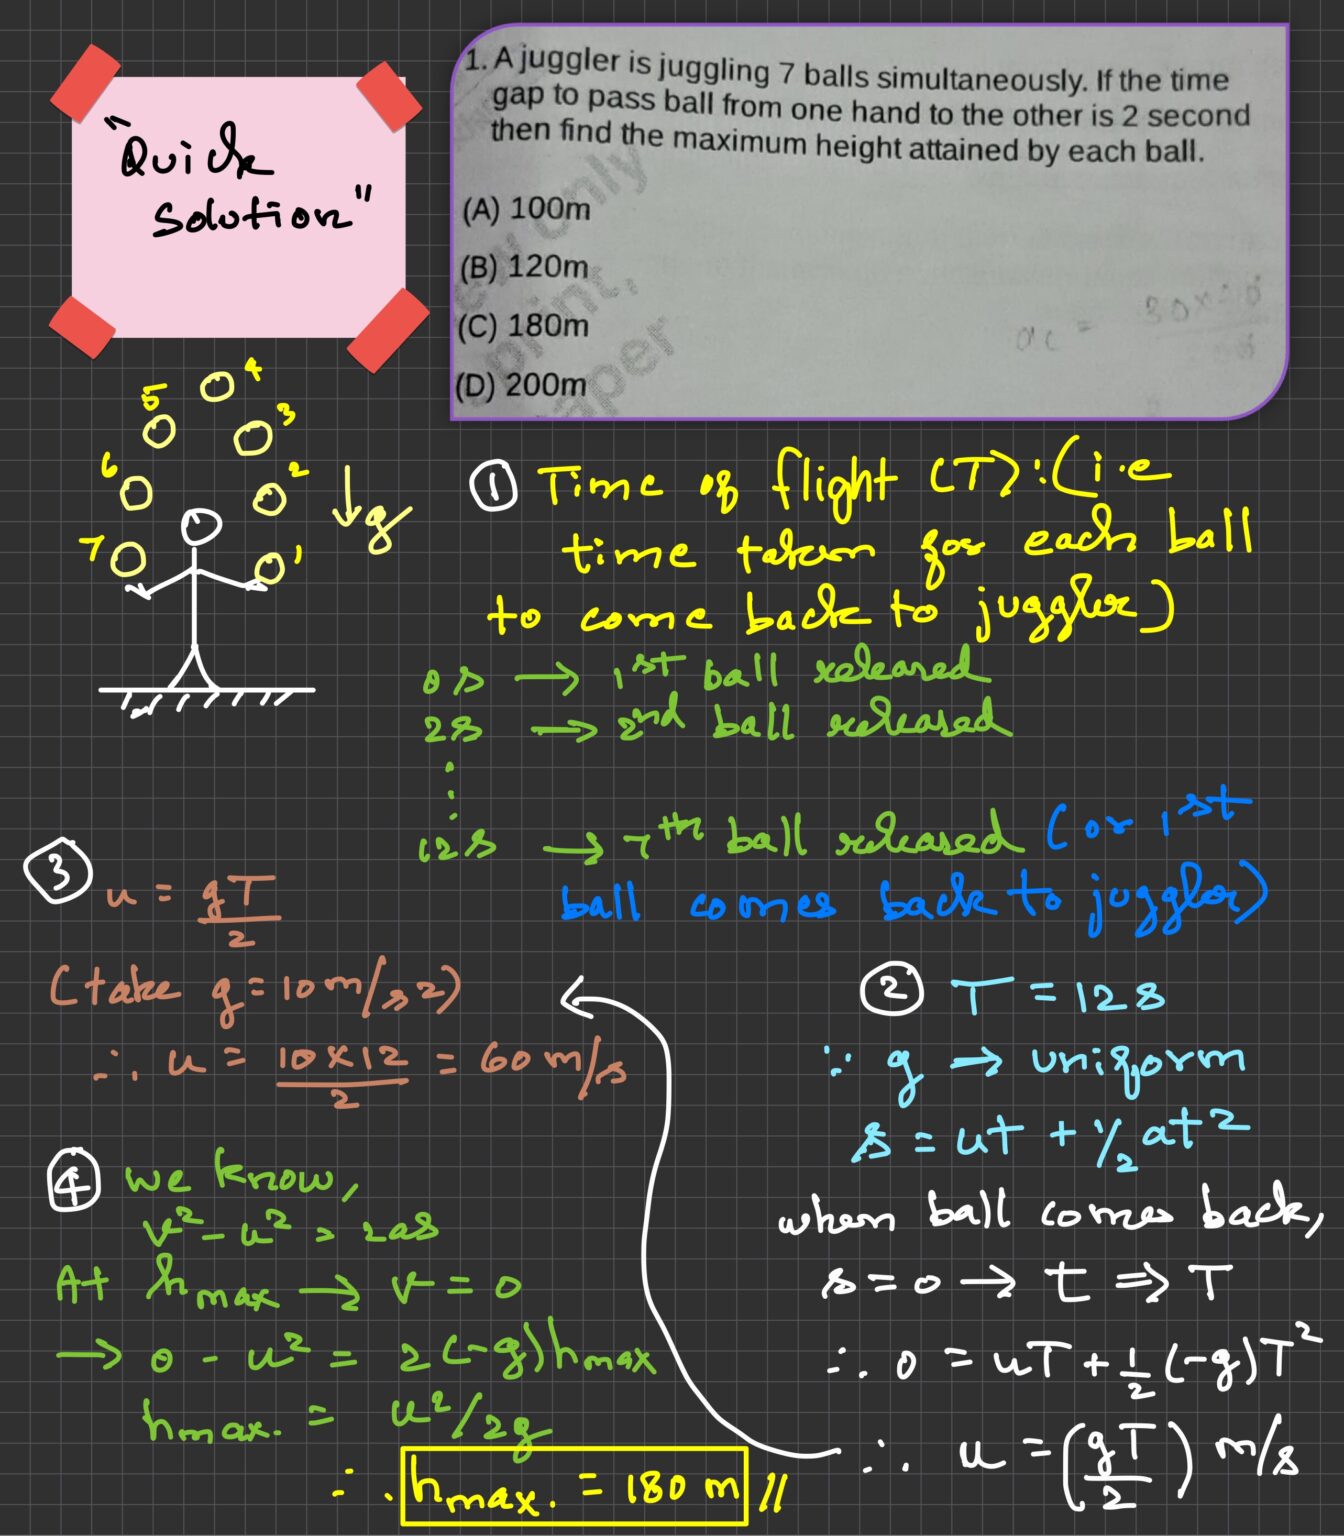 "Quick
Solution"
1. A juggler is juggling 7 balls simultaneously. If the time
gap to pass ball from one hand to the other is 2 second
then find the maximum height attained by each ball.
(A) 100m
(B) 120m
(C) 180m
(D) 200m
only
print,
paper
4
5
3
6
2
7
1
↓g
① Time of flight (T):(i.e
time taken for each ball
to come back to juggler)
0s → 1st ball released
2s → 2nd ball released
⋮
12s → 7th ball released (or 1st
ball comes back to juggler)
② T = 12s
∵ g → uniform
s = ut + 1/2 at2
when ball comes back,
s = 0 → t ⇒ T
∴ 0 = uT + 1/2 (-g)T²
∴ u = (gT/2) m/s
③ u = gT/2
(take g = 10 m/s2)
∴ u = 10×12/2 = 60 m/s
④ we know,
v² - u² = 2as
At hmax → v = 0
→ 0 - u² = 2(-g)hmax
hmax. = u²/2g
∴ hmax. = 180 m //